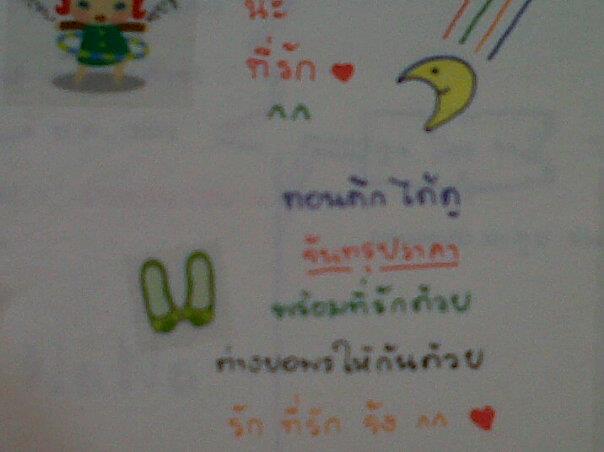 นะ
ที่รัก ❤
^^
ตอนดึก ได้ดู
จันทรุปราคา
พร้อมที่รักด้วย
ต่างขอพรให้กันด้วย
รัก ที่รัก จัง ^^ ❤